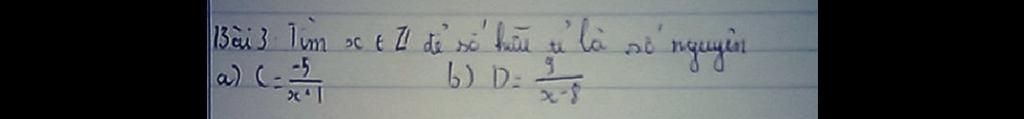 Bài 3. Tìm x ∈ Z để số hữu tỉ là số nguyên
a) C = -5/x+1 b) D = 9/x-8